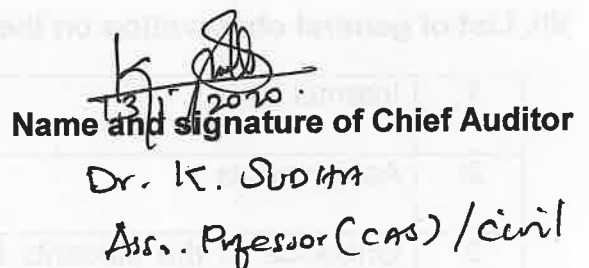 13/1/2020.
Name and signature of Chief Auditor
Dr. K. SUDHA
Ass.. Professor (CAS) / Civil